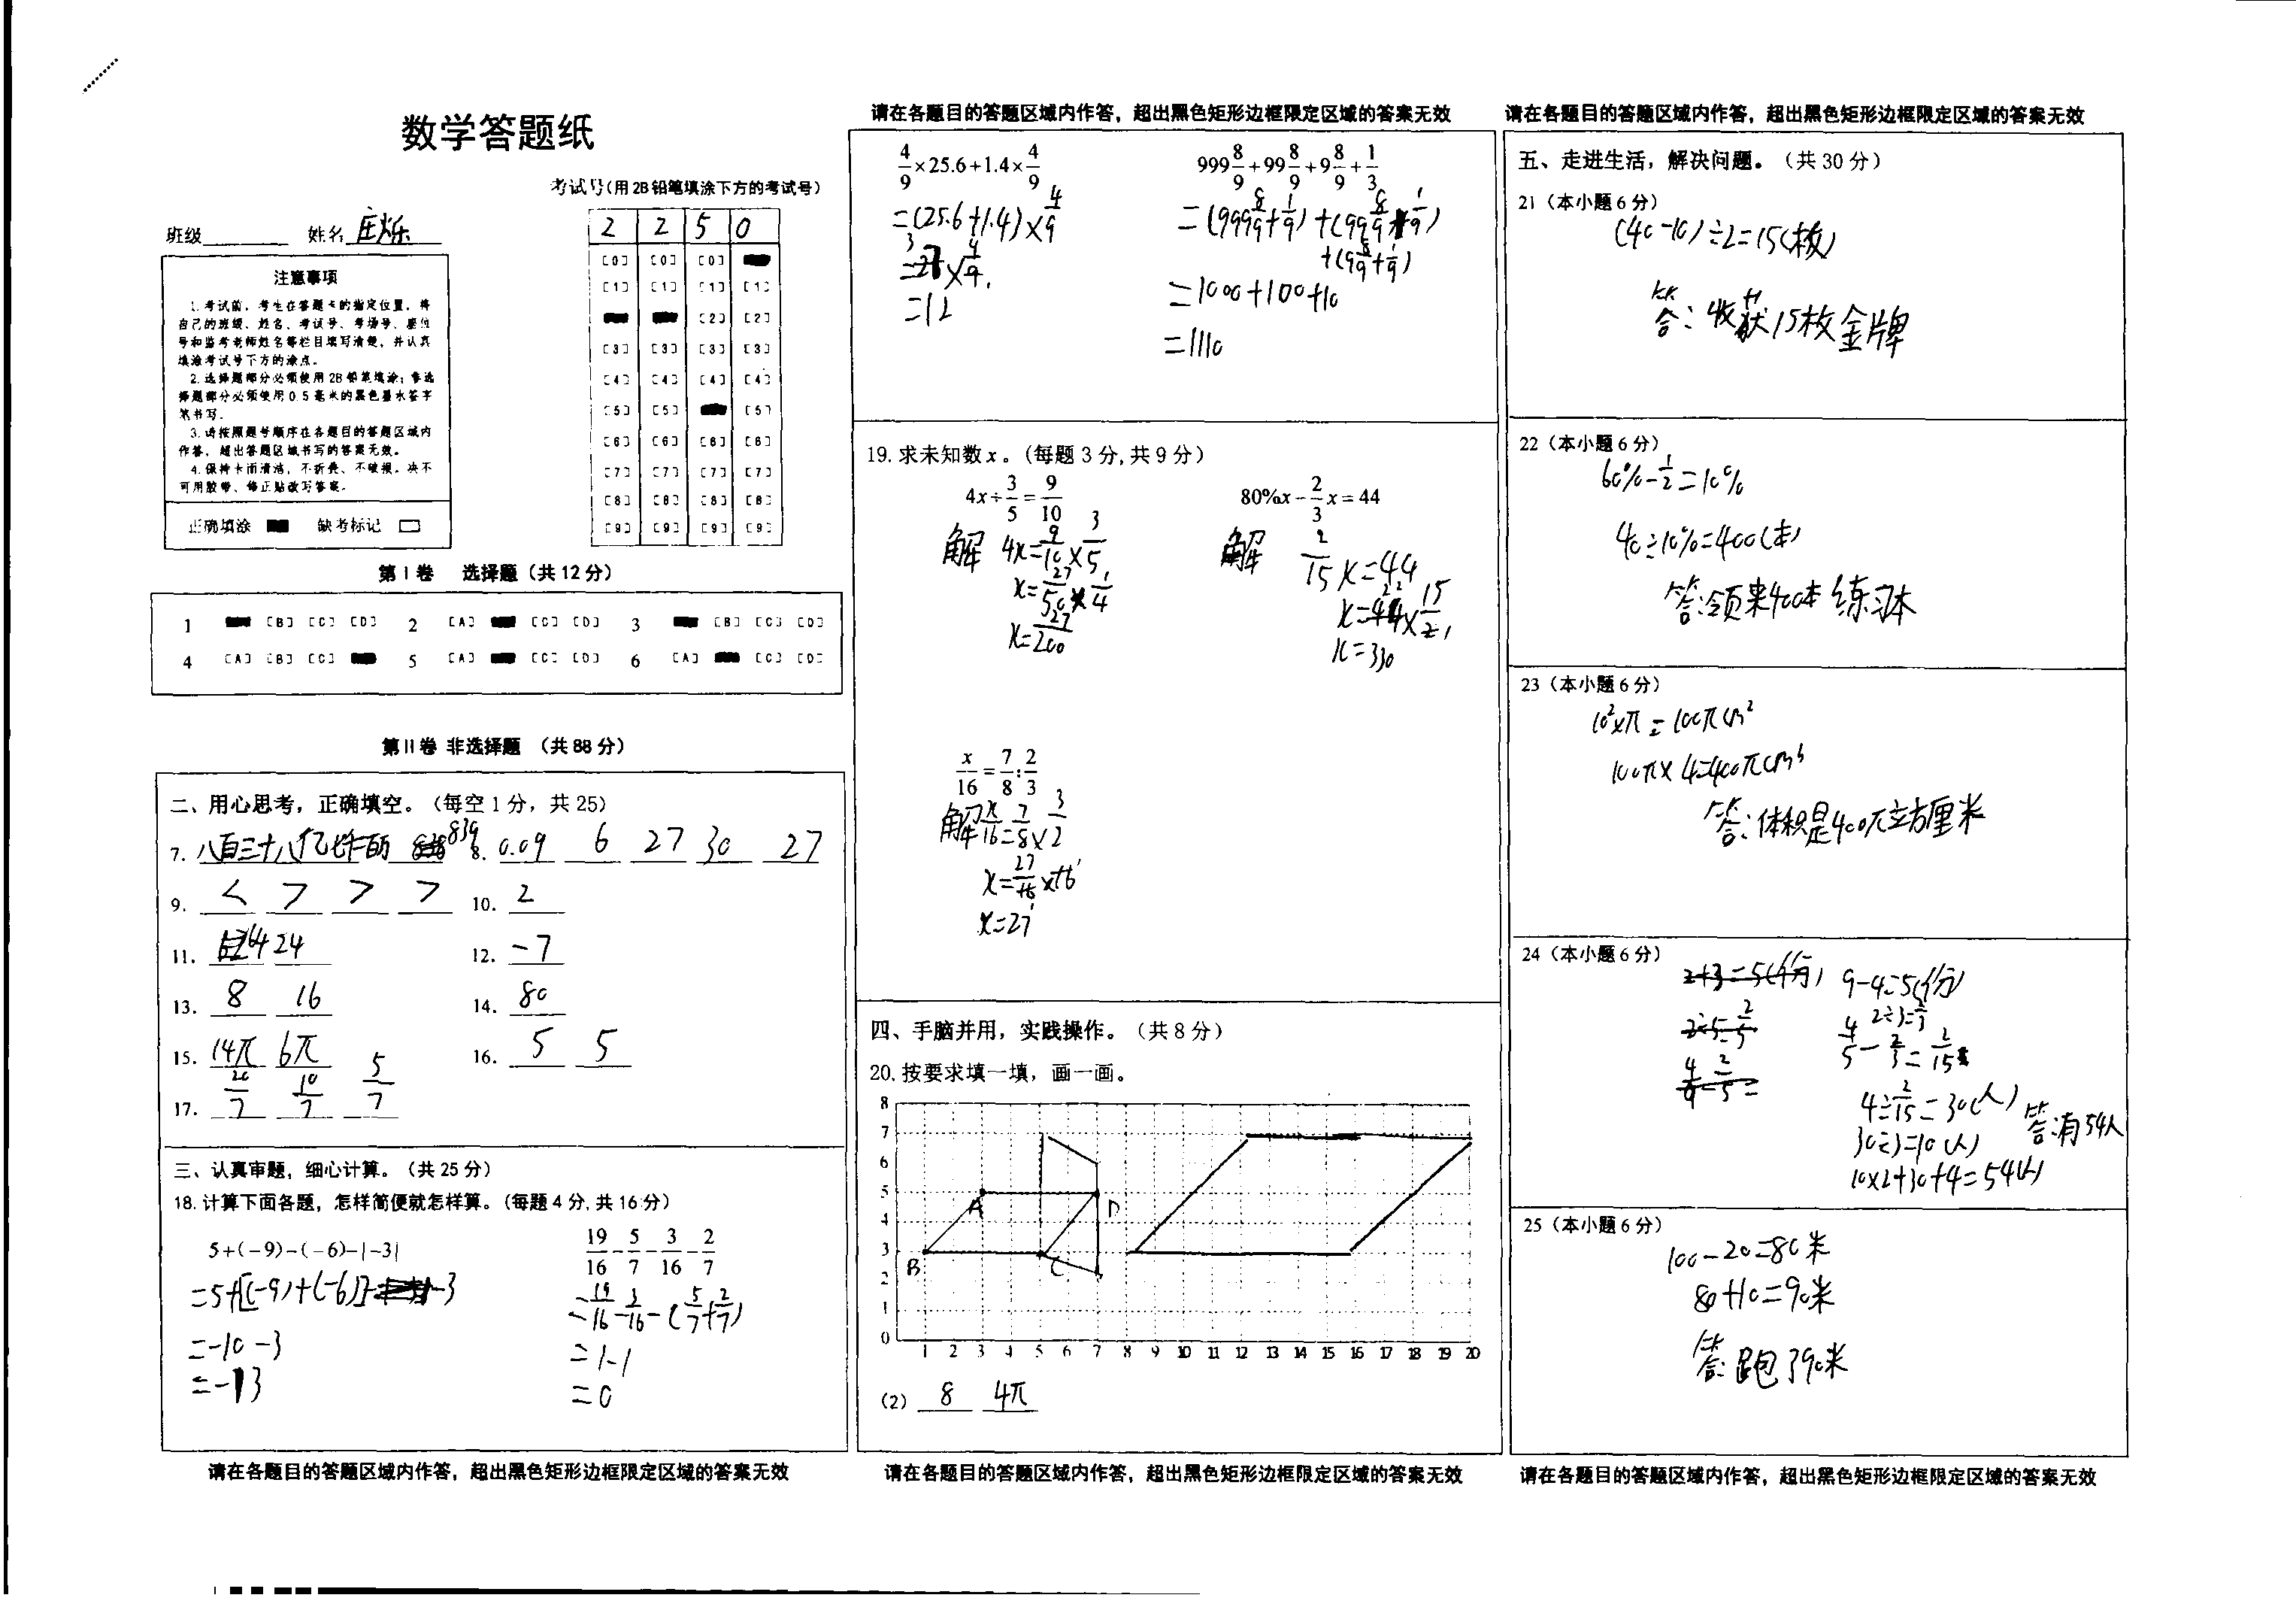 数学答题纸
考试号(用2B铅笔填涂下方的考试号)
班级 姓名 庄烁
2 2 5 0
注意事项
1.考试前,考生在答题卡的指定位置,将
自己的班级、姓名、考试号、考场号、座位
号和监考老师姓名等栏目填写清楚,并认真
填涂考试号下方的涂点。
2.选择题部分必须使用2B铅笔填涂;非选
择题部分必须使用0.5毫米的黑色墨水签字
笔书写。
3.请按照题号顺序在各题目的答题区域内
作答,超出答题区域书写的答案无效。
4.保持卡面清洁,不折叠、不破损。决不
可用胶带、修正贴改写答案。
正确填涂 缺考标记
[0] [0] [0]
[1] [1] [1] [1]
[2] [2]
[3] [3] [3] [3]
[4] [4] [4] [4]
[5] [5] [5]
[6] [6] [6] [6]
[7] [7] [7] [7]
[8] [8] [8] [8]
[9] [9] [9] [9]
第Ⅰ卷 选择题(共12分)
1 [B] [C] [D] 2 [A] [C] [D] 3 [B] [C] [D]
4 [A] [B] [C] 5 [A] [C] [D] 6 [A] [C] [D]
第Ⅱ卷 非选择题 (共88分)
二、用心思考,正确填空。(每空1分,共25)
7. 八百三十八亿 839 8. 0.09 6 27 30 27
9. < > > > 10. 2
11. 64 24 12. -7
13. 8 16 14. 80
15. 14π 6π 16. 5 5
17. 20/7 10/7 5/7
三、认真审题,细心计算。(共25分)
18.计算下面各题,怎样简便就怎样算。(每题4分,共16分)
5+(-9)-(-6)-|-3|
=5+[(-9)+(-6)]-3
=-10-3
=-13
19/16-5/7-3/16-2/7
=19/16-3/16-(5/7+2/7)
=1-1
=0
请在各题目的答题区域内作答,超出黑色矩形边框限定区域的答案无效
请在各题目的答题区域内作答,超出黑色矩形边框限定区域的答案无效
4/9×25.6+1.4×4/9
=(25.6+1.4)×4/9
=27×4/9
=12
999 8/9+99 8/9+9 8/9+1/3
=(999 8/9+1/9)+(99 8/9+1/9)
+(9 8/9+1/9)
=1000+100+10
=1110
19.求未知数x。(每题3分,共9分)
4x÷3/5=9/10
解 4x=9/10×3/5
x=27/50×1/4
x=27/200
80%x-2/3x=44
解 2/15x=44
x=44×15/2
x=330
x/16=7/8:2/3
解 x/16=7/8×3/2
x=27/16×16
x=27
四、手脑并用,实践操作。(共8分)
20.按要求填一填,画一画。
8
7
6
5
4
3
2
1
0
A D
B C
1 2 3 4 5 6 7 8 9 10 11 12 13 14 15 16 17 18 19 20
(2) 8 4π
请在各题目的答题区域内作答,超出黑色矩形边框限定区域的答案无效
请在各题目的答题区域内作答,超出黑色矩形边框限定区域的答案无效
五、走进生活,解决问题。(共30分)
21(本小题6分)
(40-10)÷2=15(枚)
答:收获15枚金牌
22(本小题6分)
60%-1/2=10%
40÷10%=400(本)
答:领来400本练习本
23(本小题6分)
10²×π=100πcm²
100π×4=400πcm³
答:体积是400π立方厘米
24(本小题6分)
2+3=5(份)
2÷5=2/5
4/9-2/5=
9-4=5(份)
2÷3=2/3
4/5-2/3=2/15
4÷2/15=30(人)
30÷3=10(人)
10×2+30+4=54(人)
答:有54人
25(本小题6分)
100-20=80米
80+10=90米
答:跑390米
请在各题目的答题区域内作答,超出黑色矩形边框限定区域的答案无效